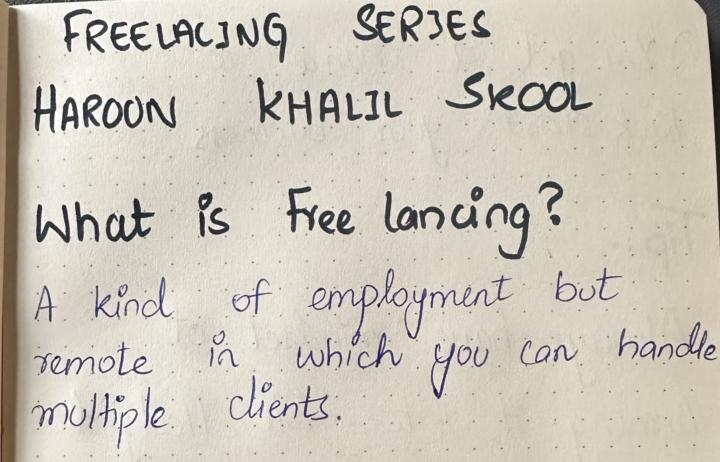 FREELACING SERIES
HAROON KHALIL SKOOL
What is Free lancing?
A kind of employment but
remote in which you can handle
multiple clients.